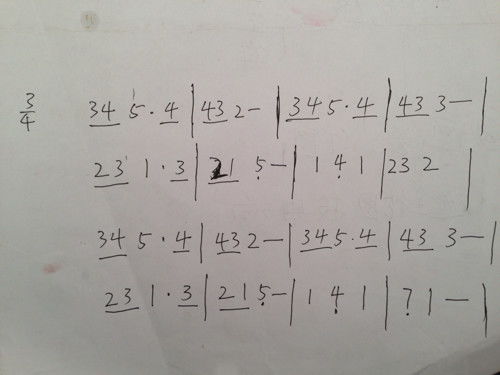 3/4 34 5· 4 | 43 2 — | 34 5· 4 | 43 3 — |
23 1· 3 | 21 5̣ — | 1 4̣ 1 | 23 2 |
34 5· 4 | 43 2 — | 34 5· 4 | 43 3 — |
23 1· 3 | 21 5̣ — | 1 4̣ 1 | 7̣ 1 — |